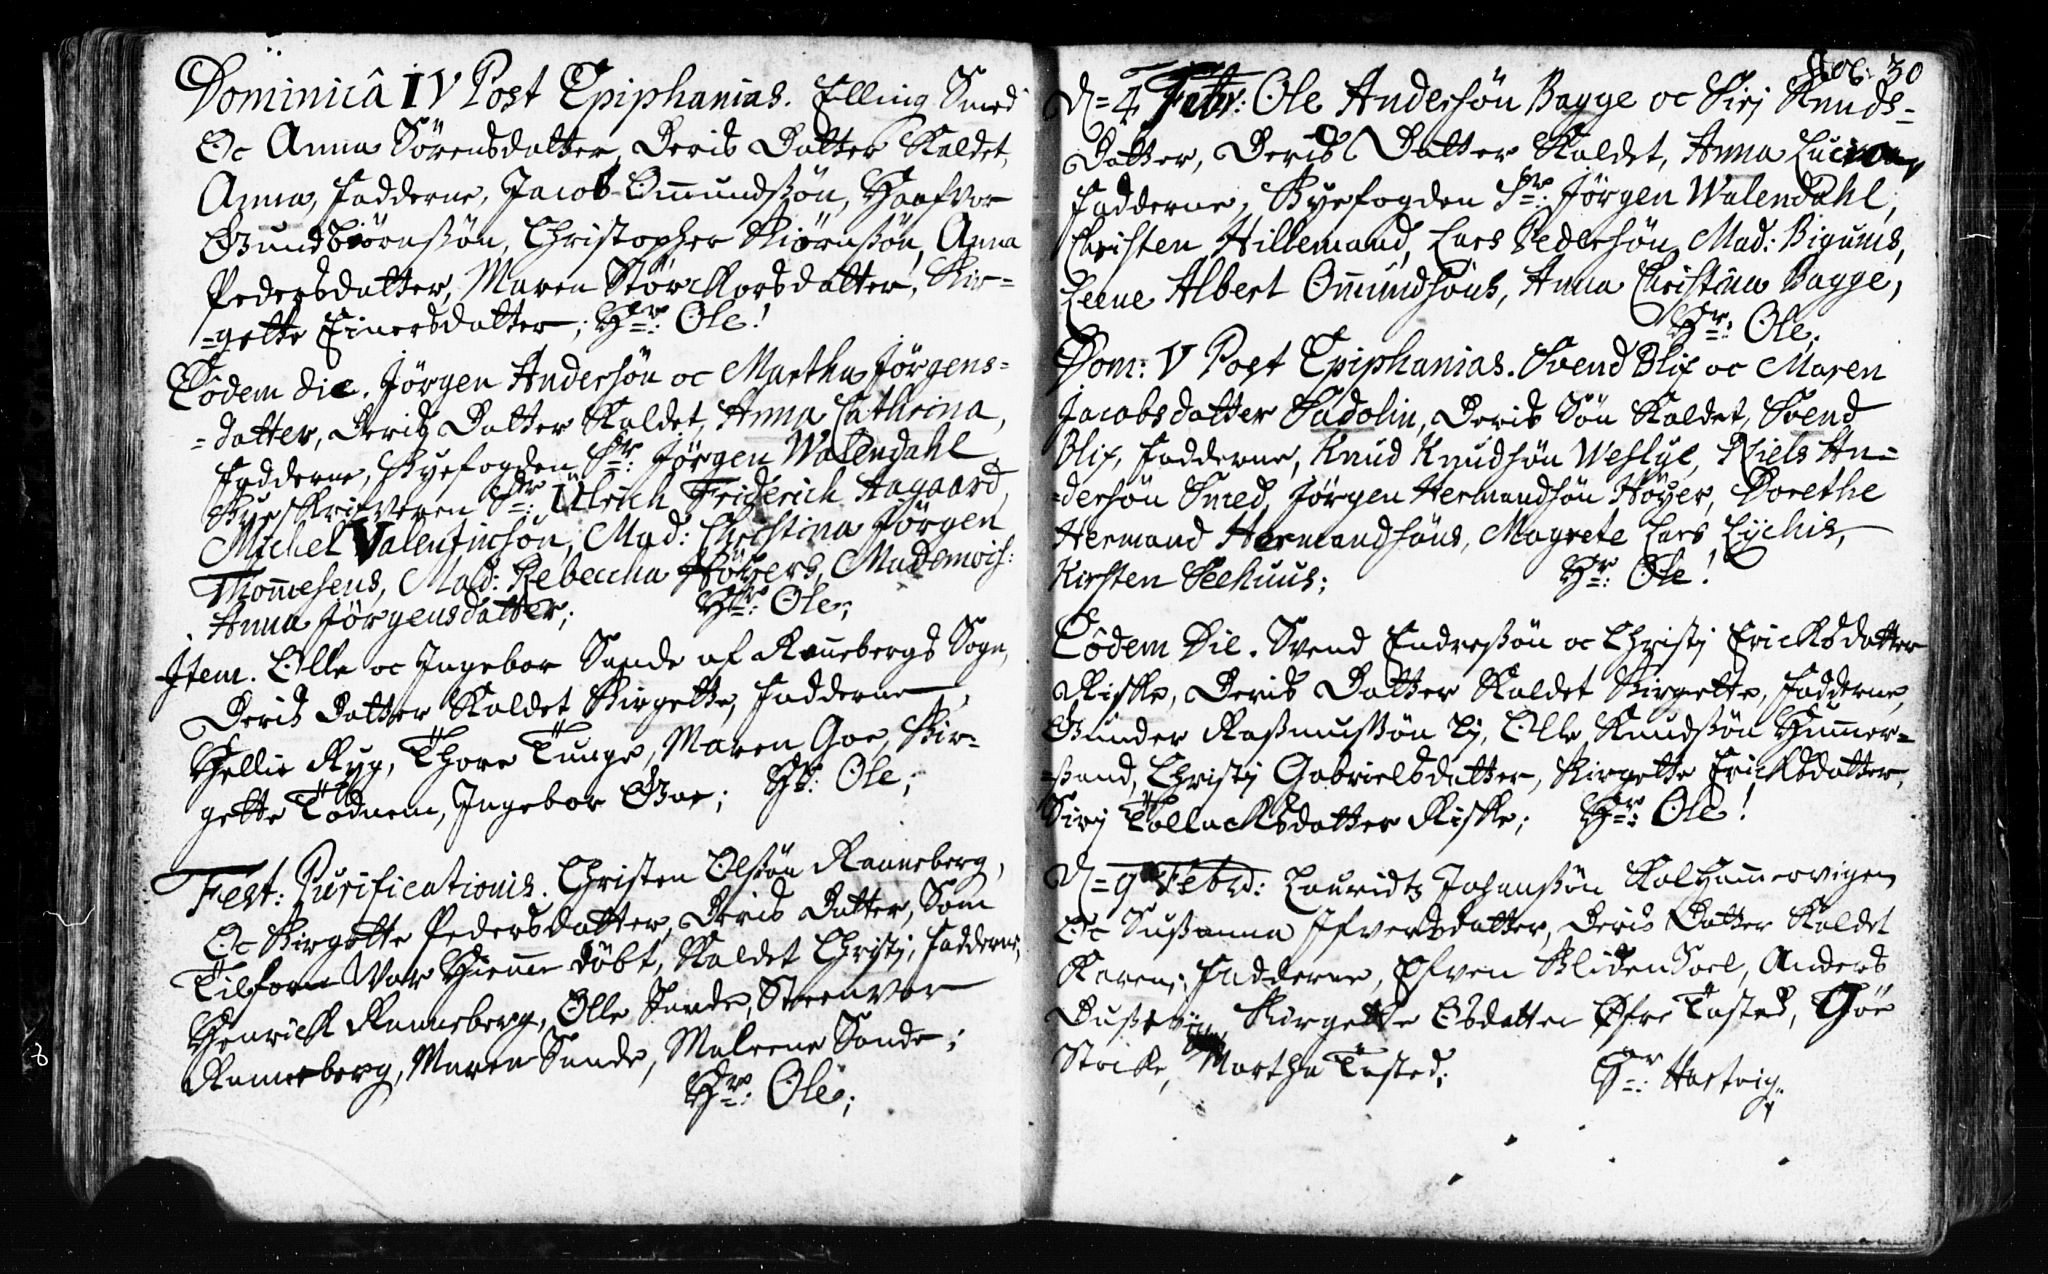 Dominicâ IV Post Epiphanias. Elling Smed
Oc Anna Sörensdatter, Deris Datter Kaldet,
Anna, Fadderne, Jacob Omundssön, Haafvor
Gundbiörnssön, Christopher Biörnssön, Anna
Pedersdatter, Maren Störckorsdatter, Bir-
-gette Einersdatter; Hr: Ole!
Eôdem die. Jörgen Andersön oc Martha Jörgens-
-datter, Deris Datter Kaldet, Anna Cathrina,
Fadderne, Byefogden Sr: Jörgen Walendahl
Byeskrifveren Sr: Ulrich Friderich Aagaard,
Michel Valentinsön, Mad: Christina Jörgen
Thommesens, Mad: Rebeccha Höyers, Mademois:
Anna Jörgensdatter; Hr: Ole;
Item. Olle oc Ingebor Sande af Rannebergs Sogn,
Deris Datter Kaldet Birgette, Fadderne,
Hellie Ryg, Thore Tunge, Maren Goe, Bir-
gette Todnem, Ingebor Goe; Hr: Ole;
Fest: Purificationis. Christen Olssön Ranneberg,
Oc Birgette Pedersdatter, Deris Datter, Som
Tilforn Var Hiemme döbt, Kaldet Christj, Fadderne,
Henrick Ranneberg, Olle Sande, Steenvor
Ranneberg, Maren Sande, Maleene Sande;
Hr: Ole;
30
D= 4 Febr: Ole Andersön Bagge oc Sirj Knuds-
Datter, Deris Datter Kaldet, Anna Lucia,
Fadderne, Byefogden Sr: Jörgen Walendahl,
Christen Hillemand, Lars Pedersön, Mad: Bigums,
Leene Albert Omundsöns, Anna Christina Bagge,
Hr: Ole.
Dom: V Post Epiphanias. Svend Blix oc Maren
Jacobsdatter Sadolin, Deris Sön Kaldet, Svend
Blix, Fadderne, Knud Knudsön Weslye, Niels An-
-dersön Smed, Jörgen Hermandsön Höyer, Dorethe
Hermand Hermandsöns, Magrete Lars Lychis,
Kirsten Seehuus; Hr: Ole!
Eôdem Die. Svend Endressön oc Christj Ericksdatter
Riske, Deris Datter Kaldet Birgette, Fadderne,
Gunder Rasmussön Ly, Olle Knudssön Hummer-
-sand, Christj Gabrielsdatter, Birgette Ericksdatter,
Sirj Tollacksdatter Riske; Hr: Ole!
D= 9 Febr: Lauridtz Johanssön Kalhammervigen
Oc Susanna Ifversdatter, Deris Datter Kaldet
Karen; Fadderne, Efven Blidensoel, Anders
Birgette Osdatter Öfre Tasted, Thöe
Stocke, Martha Tasted; Hr: Hartvig.